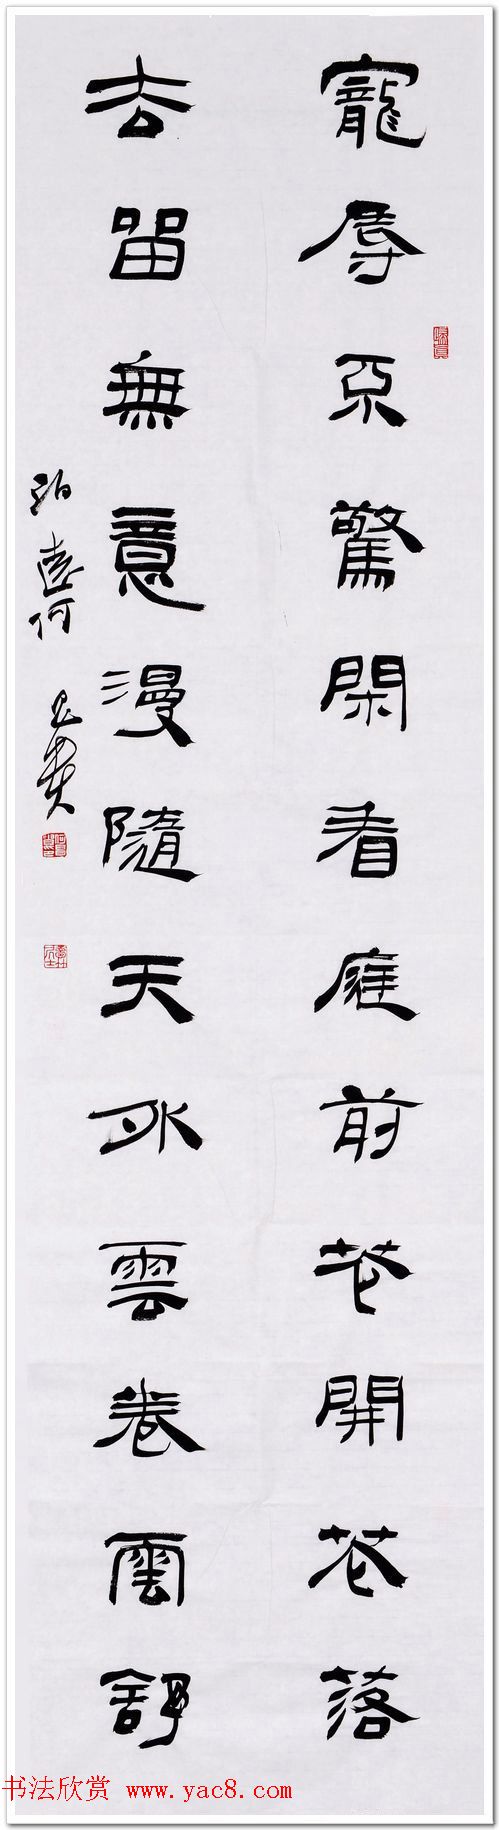 寵辱不驚閑看庭前花開花落
去留無意漫隨天外雲卷雲舒
泊何
书法欣赏 www.yac8.com